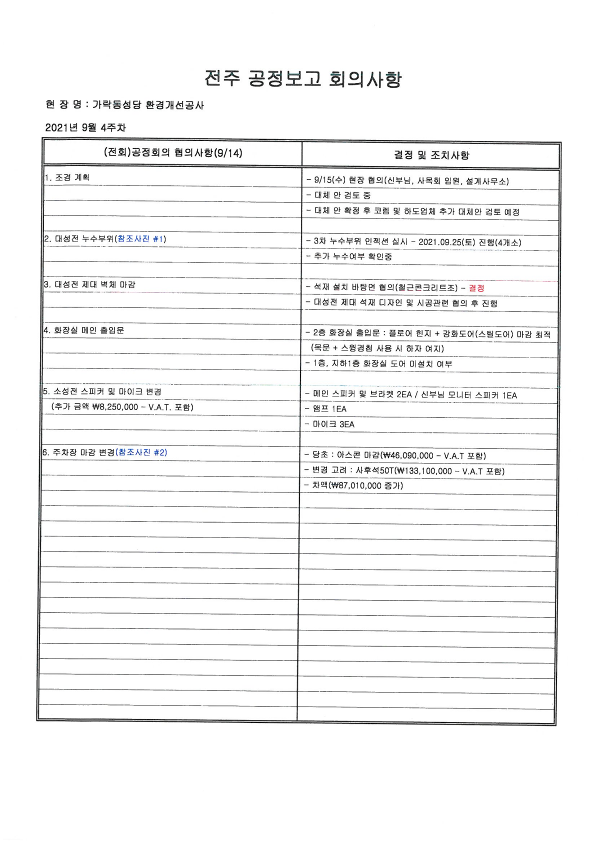 전주 공정보고 회의사항
현 장 명 : 가락동성당 환경개선공사
2021년 9월 4주차
(전회)공정회의 협의사항(9/14)
결정 및 조치사항
1. 조경 계획
- 9/15(수) 현장 협의(신부님, 사목회 임원, 설계사무소)
- 대체 안 검토 중
- 대체 안 확정 후 코렘 및 하도업체 추가 대체안 검토 예정
2. 대성전 누수부위(참조사진 #1)
- 3차 누수부위 인젝션 실시 - 2021.09.25(토) 진행(4개소)
- 추가 누수여부 확인중
3. 대성전 제대 벽체 마감
- 석재 설치 바탕면 협의(철근콘크리트조) - 결정
- 대성전 제대 석재 디자인 및 시공관련 협의 후 진행
4. 화장실 메인 출입문
- 2층 화장실 출입문 : 플로어 힌지 + 강화도어(스윙도어) 마감 최적
(목문 + 스윙경첩 사용 시 하자 여지)
- 1층, 지하1층 화장실 도어 미설치 여부
5. 소성전 스피커 및 마이크 변경
- 메인 스피커 및 브라켓 2EA / 신부님 모니터 스피커 1EA
(추가 금액 ₩8,250,000 - V.A.T. 포함)
- 앰프 1EA
- 마이크 3EA
6. 주차장 마감 변경(참조사진 #2)
- 당초 : 아스콘 마감(₩46,090,000 - V.A.T 포함)
- 변경 고려 : 사후석50T(₩133,100,000 - V.A.T 포함)
- 차액(₩87,010,000 증가)